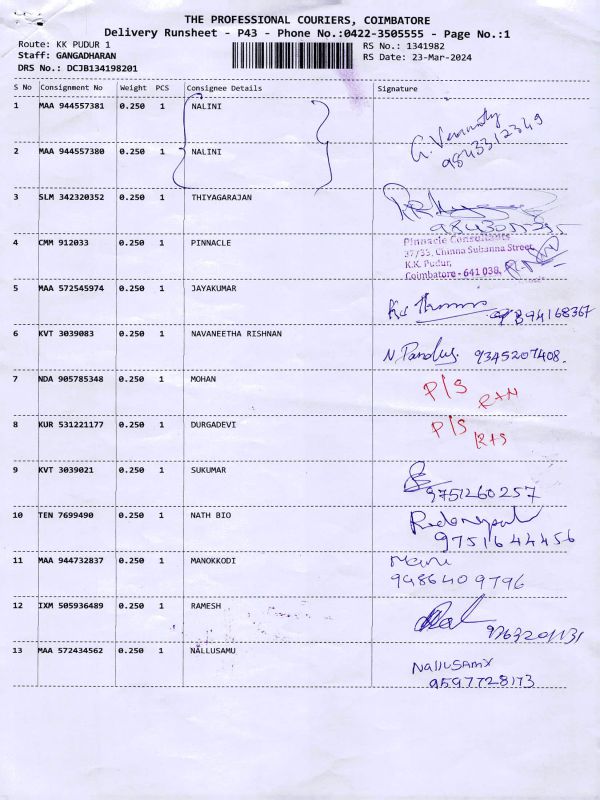 THE PROFESSIONAL COURIERS, COIMBATORE
Delivery Runsheet - P43 - Phone No.:0422-3505555 - Page No.:1
Route: KK PUDUR 1 RS No.: 1341982
Staff: GANGADHARAN RS Date: 23-Mar-2024
DRS No.: DCJB134198201
S No Consignment No Weight PCS Consignee Details Signature
1 MAA 944557381 0.250 1 NALINI
9843312349
2 MAA 944557380 0.250 1 NALINI
3 SLM 342320352 0.250 1 THIYAGARAJAN
4 CMM 912033 0.250 1 PINNACLE Pinnacle Consultants
37/33, Chinna Subanna Street,
K.K. Pudur,
Coimbatore - 641 038.
5 MAA 572545974 0.250 1 JAYAKUMAR
6 KVT 3039083 0.250 1 NAVANEETHA RISHNAN
9345207408.
7 NDA 905785348 0.250 1 MOHAN P/S
8 KUR 531221177 0.250 1 DURGADEVI P/S
9 KVT 3039021 0.250 1 SUKUMAR
9751260257
10 TEN 7699490 0.250 1 NATH BIO
9751644456
11 MAA 944732837 0.250 1 MANOKKODI
9486409796
12 IXM 505936489 0.250 1 RAMESH
13 MAA 572434562 0.250 1 NALLUSAMU Nallusamy
9597728173